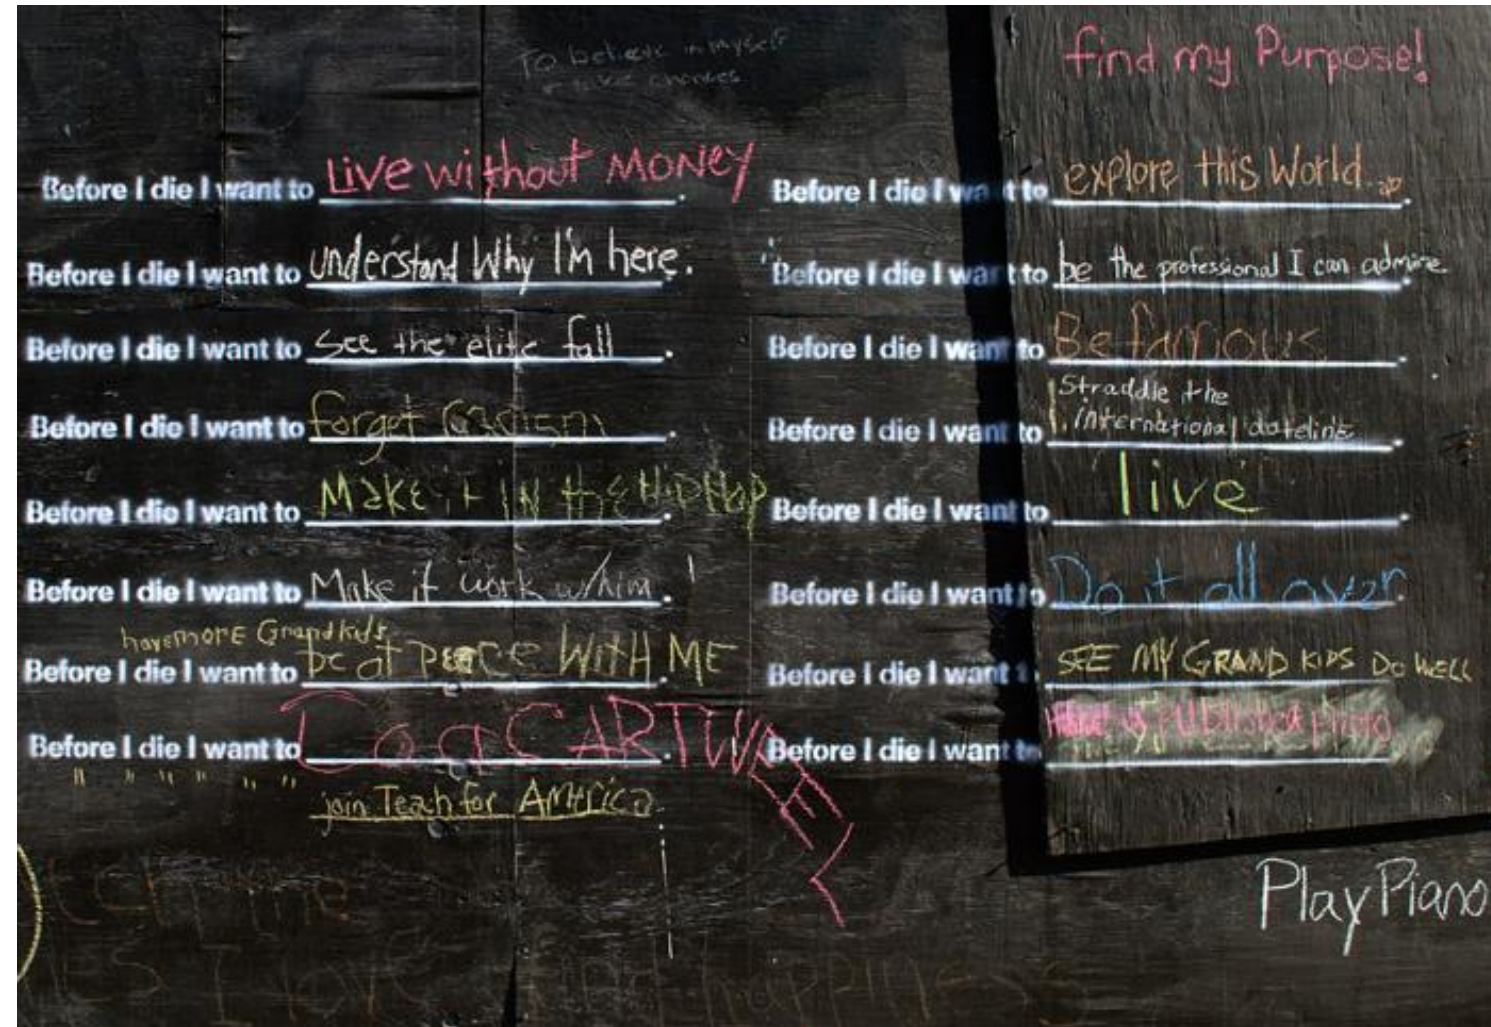 To believe in myself
+ take chances
find my Purpose!
Before I die I want to Live without MONEY.
Before I die I want to understand Why I'm here.
Before I die I want to see the elite fall.
Before I die I want to forget racism.
Before I die I want to Make it IN the HIPHOP
Before I die I want to Make it work w/him.
have morE Grandkids
Before I die I want to be at PEaCE WitH ME
Before I die I want to Do a CARTWHEEL
" " " " " "
join Teach for AmErica.
Before I die I want to explore this World...
Before I die I want to be the professional I can admire.
Before I die I want to Be famous.
Before I die I want to Straddle the
international dateline.
Before I die I want to live.
Before I die I want to Do it all over.
Before I die I want SEE MY GRAND KIDS DO WELL
Before I die I want to a published photo
Play Piano
I love happiness